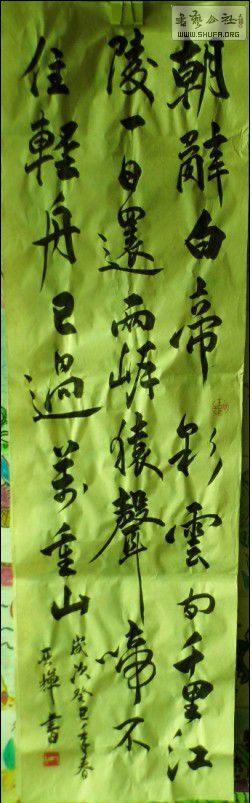 朝辭白帝彩雲間千里江
陵一日還兩岸猿聲啼不
住輕舟已過萬重山
歲次癸巳季春
書
書藝公社
WWW.SHUFA.ORG